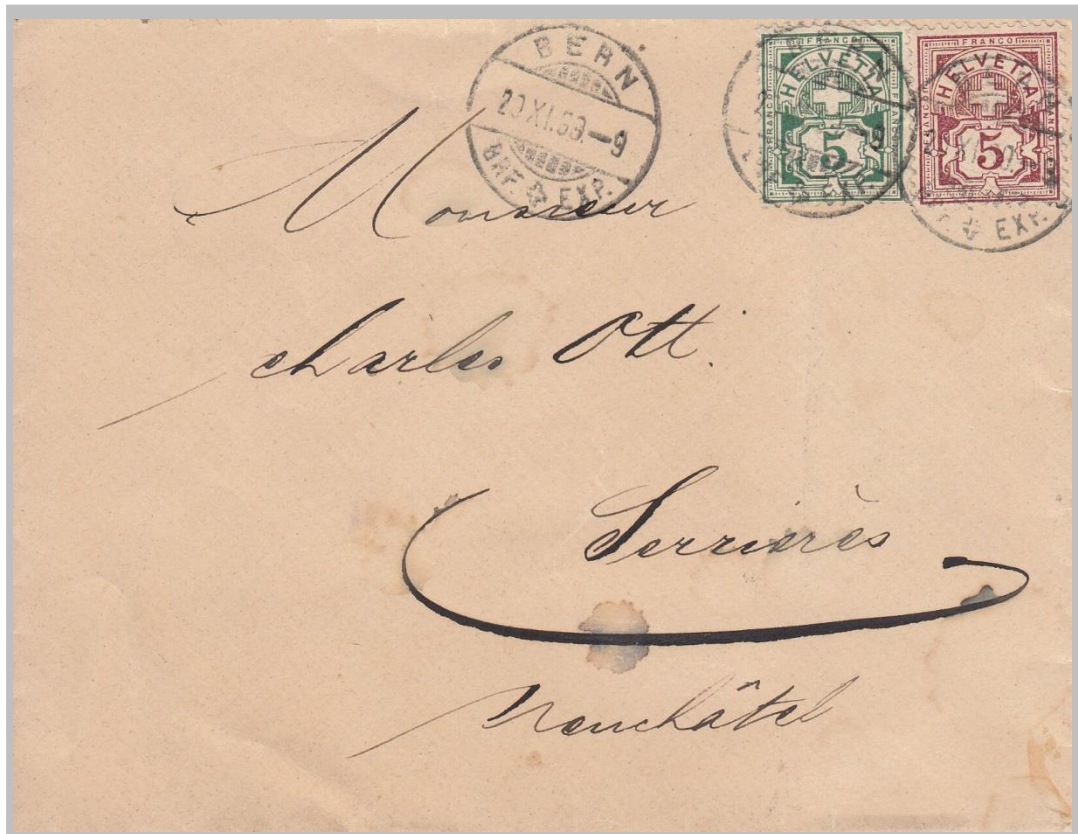 BERN
BRF. EXP.
FRANCO
HELVETIA
5
FRANCO
HELVETIA
5
EXP.
Monsieur
Charles Ott.
Serrières
Neuchâtel